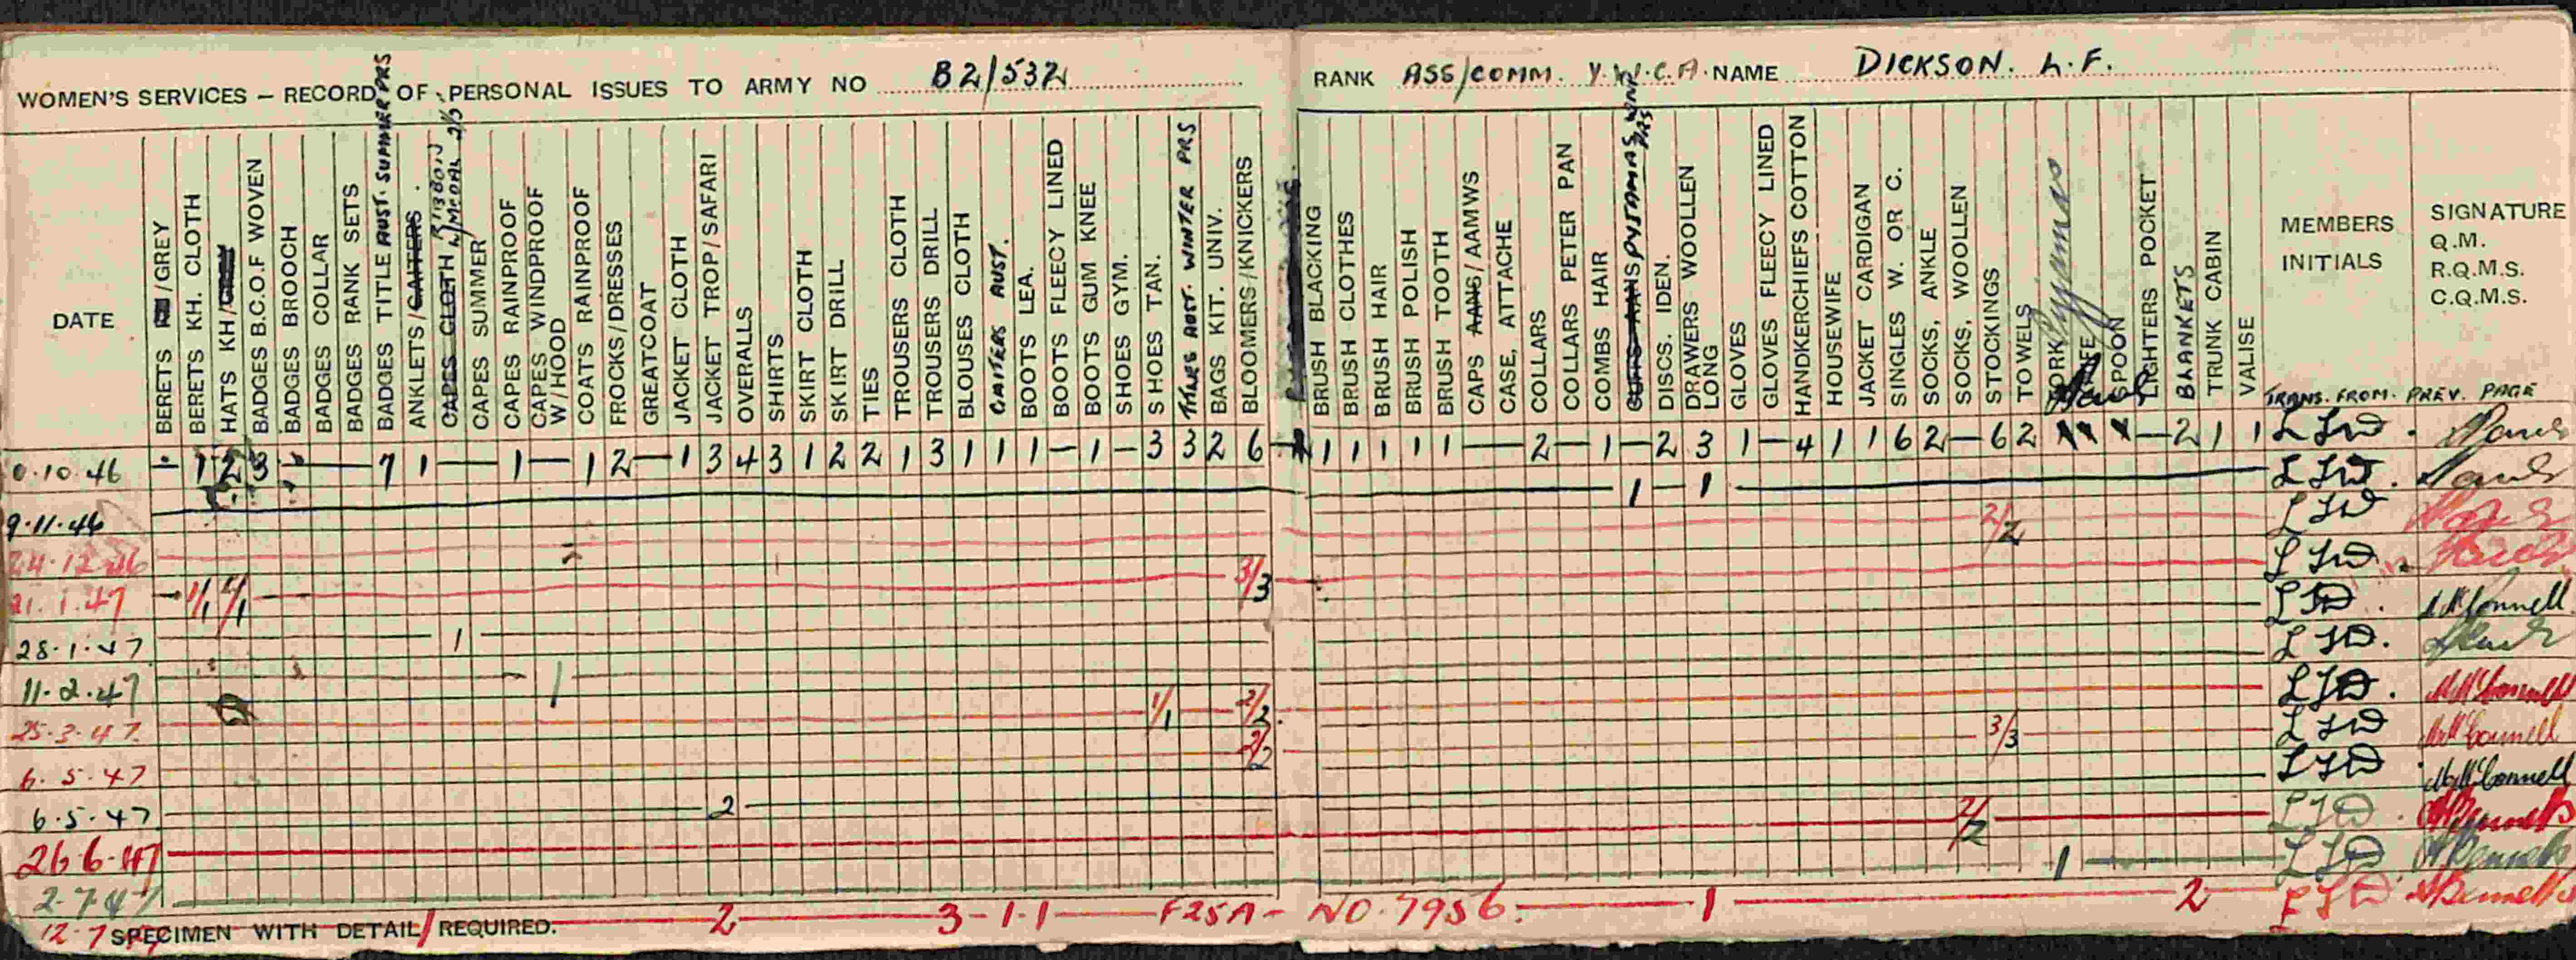 WOMEN'S SERVICES — RECORD OF PERSONAL ISSUES TO ARMY NO B2/532 RANK ASS/COMM. Y.W.C.A. NAME DICKSON. L.F.
DATE
BERETS /GREY
BERETS KH. CLOTH
HATS KH/
BADGES B.C.O.F WOVEN
BADGES BROOCH
BADGES COLLAR
BADGES RANK SETS
BADGES TITLE AUST. SUMMER PRS
ANKLETS/GAITERS.
CAPES CLOTH RIBBON W/MEDAL
CAPES SUMMER
CAPES RAINPROOF
CAPES WINDPROOF W/HOOD
COATS RAINPROOF
FROCKS/DRESSES
GREATCOAT
JACKET CLOTH
JACKET TROP/SAFARI
OVERALLS
SHIRTS
SKIRT CLOTH
SKIRT DRILL
TIES
TROUSERS CLOTH
TROUSERS DRILL
BLOUSES CLOTH
GAITERS AUST.
BOOTS LEA.
BOOTS FLEECY LINED
BOOTS GUM KNEE
SHOES GYM.
SHOES TAN.
TITLES AUST. WINTER PRS
BAGS KIT. UNIV.
BLOOMERS/KNICKERS
BRUSH BLACKING
BRUSH CLOTHES
BRUSH HAIR
BRUSH POLISH
BRUSH TOOTH
CAPS AANS/AAMWS
CASE, ATTACHE
COLLARS
COLLARS PETER PAN
COMBS HAIR
PYJAMAS PRS
DISCS. IDEN.
DRAWERS WOOLLEN LONG
GLOVES
GLOVES FLEECY LINED
HANDKERCHIEFS COTTON
HOUSEWIFE
JACKET CARDIGAN
SINGLES W. OR C.
SOCKS, ANKLE
SOCKS, WOOLLEN
STOCKINGS
TOWELS
FORK Pyjamas
SPOON
LIGHTERS POCKET
BLANKETS
TRUNK CABIN
VALISE
MEMBERS INITIALS
SIGNATURE
Q.M.
R.Q.M.S.
C.Q.M.S.
TRANS. FROM. PREV. PAGE
0.10.46 — 1 2 3 — 7 1 — 1 — 1 2 — 1 3 4 3 1 2 2 1 3 1 1 1 — 1 — 3 3 2 6 — 1 1 1 1 1 — 2 — 1 — 2 3 1 — 4 1 1 6 2 — 6 2 — 2 1 1 LFD.
9.11.46 1 — 1 LFD.
24.12.46 2/2 LFD
21.1.47 — 1/1 1/1 — 3/3 LFD.
28.1.47 1 LFD. McConnell
11.2.47 1 LFD.
25.3.47 1/1 2/2 LFD. McConnell
6.5.47 2/2 3/3 LFD McConnell
6.5.47 2 LFD McConnell
26.6.47 2/2 LFD. Bennetts
2.7.47 1 LFD Bennetts
12.7 2 3-1-1 F25A — NO. 7956. 1 2 LFD Bennetts
SPECIMEN WITH DETAIL/REQUIRED.